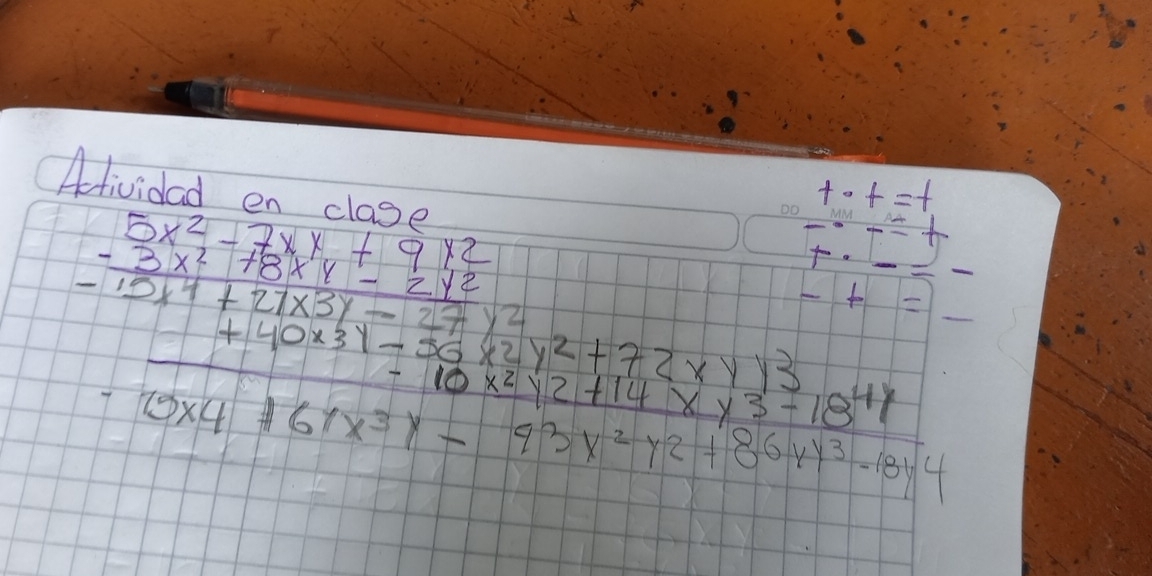 Actividad en clase
5x2 - 7xy + 9y2
- 3x2 +8xy - 2y2
- 15x4 + 21x3y - 27 y2
+ 40x3y - 56 x2y2 + 72xyy3
- 10 x2y2 +14 xy3 - 18 4y
- 15x4 + 61x3y - 93x2y2 + 86yy3 - 18y4
+ . + = +
- . - = +
+ . - = -
- + = -
DD MM AA